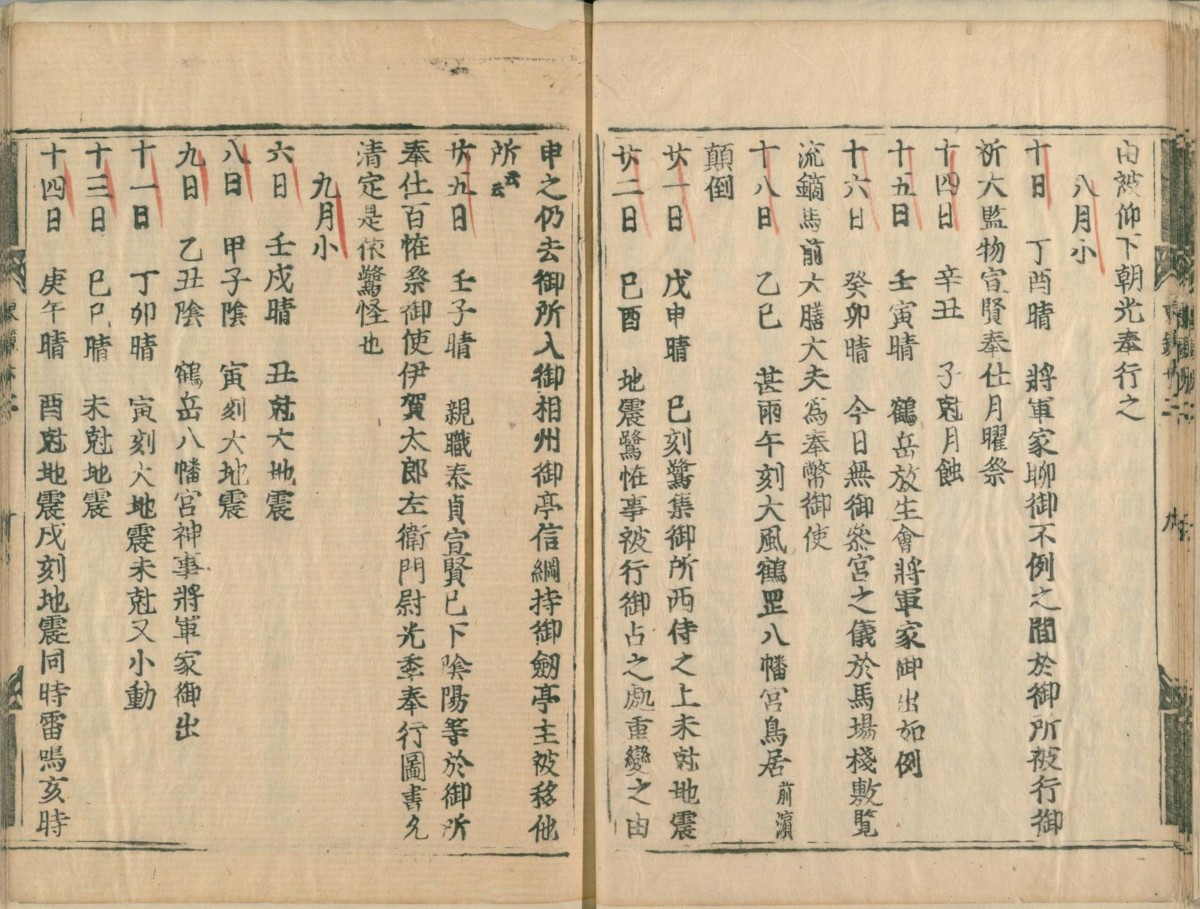 由被仰下朝光奉行之
八月小
十日 丁酉晴 將軍家聊御不例之間於御所被行御
祈大監物宣賢奉仕月曜祭
十四日 辛丑 子尅月蝕
十五日 壬寅晴 鶴岳放生會將軍家御出如例
十六日 癸卯晴 今日無御參宮之儀於馬場棧敷覧
流鏑馬前大膳大夫爲奉幣御使
十八日 乙巳 甚雨午刻大風鶴罡八幡宮鳥居前濱
顛倒
廿一日 戊申晴 巳刻鷺集御所西侍之上未尅地震
廿二日 己酉 地震鷺恠事被行御占之處重變之由
申之仍去御所入御相州御亭信綱持御劔亭主被移他
所云云
廿九日 壬子晴 親職泰貞宣賢已下陰陽等於御所
奉仕百恠祭御使伊賀太郎左衛門尉光季奉行圖書允
清定是依鷺怪也
九月小
六日 壬戌晴 丑尅大地震
八日 甲子陰 寅刻大地震
九日 乙丑陰 鶴岳八幡宮神事將軍家御出
十一日 丁卯晴 寅刻大地震未尅又小動
十三日 己巳晴 未尅地震
十四日 庚午晴 酉尅地震戌刻地震同時雷鳴亥時